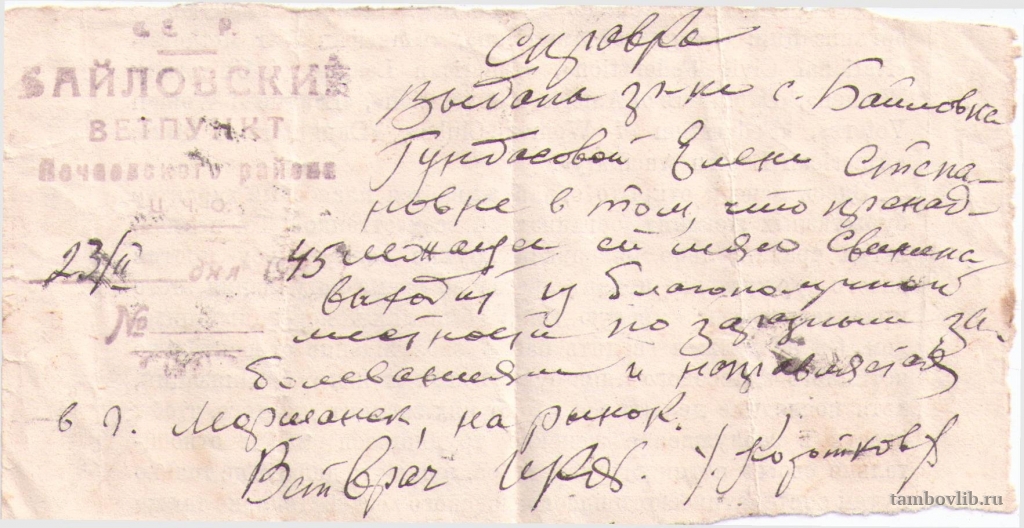 Р.С.Ф.С.Р.
БАЙЛОВСКИЙ
ВЕТПУНКТ
Пичаевского района
Ц.Ч.О.
23/II дня 1945
№
Справка
Выдана гр-ке с. Байловка
Гундасовой Елене Степа-
новне в том, что пренад-
лежаще ей мясо свинина
выходит из благополучной
местности по заразным за-
болеваниям и направляется
в г. Моршанск, на рынок.
Ветврач /Коротков/
tambovlib.ru